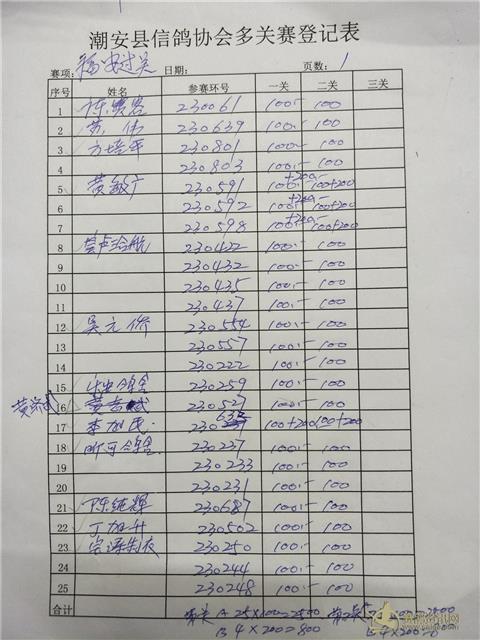 潮安县信鸽协会多关赛登记表
赛项: 福安过关 日期: 页数: 1
序号 姓名 参赛环号 一关 二关 三关
1 230061 100.- 100
2 苏伟 230639 100.- 100
3 方培军 230801 100.- 100
4 230803 100.- 100
5 黄敏广 230591 100.-+200.- 100+200
6 230592 100.-+200.- 100+200
7 230598 100.-+200.- 100+200
8 230422 100.- 100
9 230432 100.- 100
10 230435 100.- 100
11 230437 100.- 100
12 吴元侨 230554 100.- 100
13 230557 100.- 100
14 230222 100.- 100
15 乐安鸽舍 230259 100.- 100
16 230527 100.- 100
17 李加民 230632 100+200 100+200
18 昕可鸽舍 230237 100.- 100
19 230233 100.- 100
20 230231 100.- 100
21 陈纯辉 230687 100.- 100
22 丁加升 230502 100.- 100
23 230250 100.- 100
24 230244 100.- 100
25 230248 100.- 100
合计 A 25×100=2500
B 4×200=800